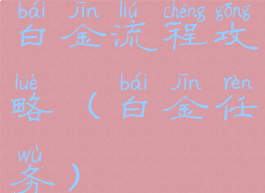 bái jīn liú chéng gōng
白金流程攻
lüè bái jīn rèn
略（白金任
wù
务）